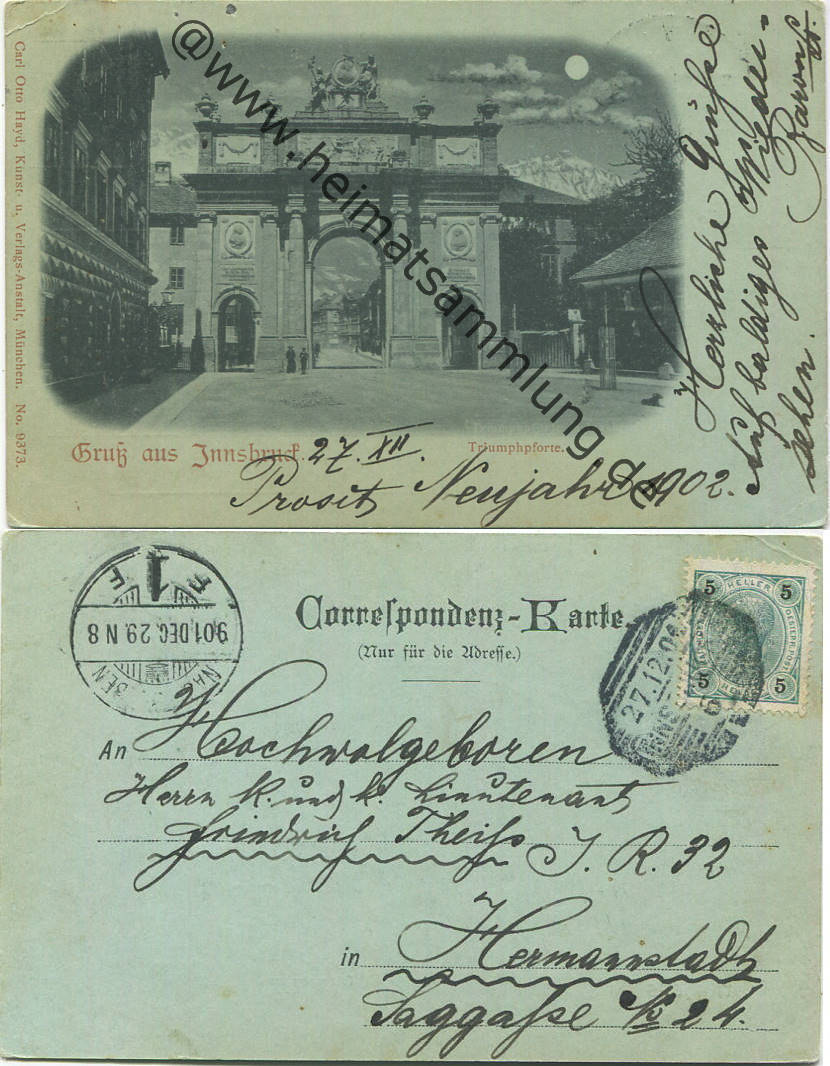 Carl Otto Hayd, Kunst- u. Verlags-Anstalt, München. No. 9373.
@www.heimatsammlung.de
Gruß aus Innsbruck.
Triumphpforte.
27. XII.
Prosit Neujahr 1902.
Herzliche Grüße
Auf baldiges Wieder-
sehen.
Correspondenz-Karte.
(Nur für die Adresse.)
901 DEC. 29. N 8
F 1 F
5 HELLER 5
5 5
27.12.0
An Hochwolgeboren
Herrn k. und k. Lieutenant
Friedrich Theiss J. R. 32
in Hermannstadt
Saggasse № 24.